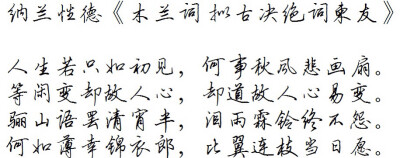 纳兰性德《木兰词拟古决绝词柬友》
人生若只如初见，何事秋风悲画扇。
等闲变却故人心，却道故人心易变。
骊山语罢清宵半，泪雨霖铃终不怨。
何如薄幸锦衣郎，比翼连枝当日愿。